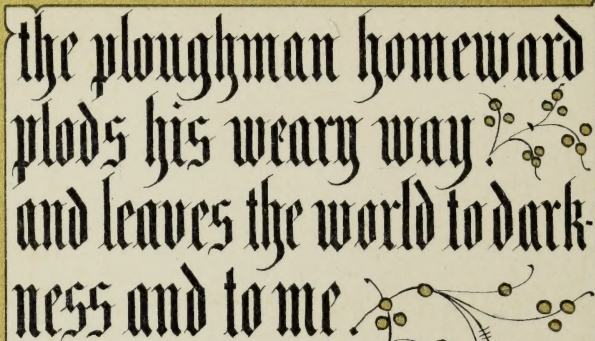 the ploughman homeward
plods his weary way.
and leaves the world to dark-
ness and to me.